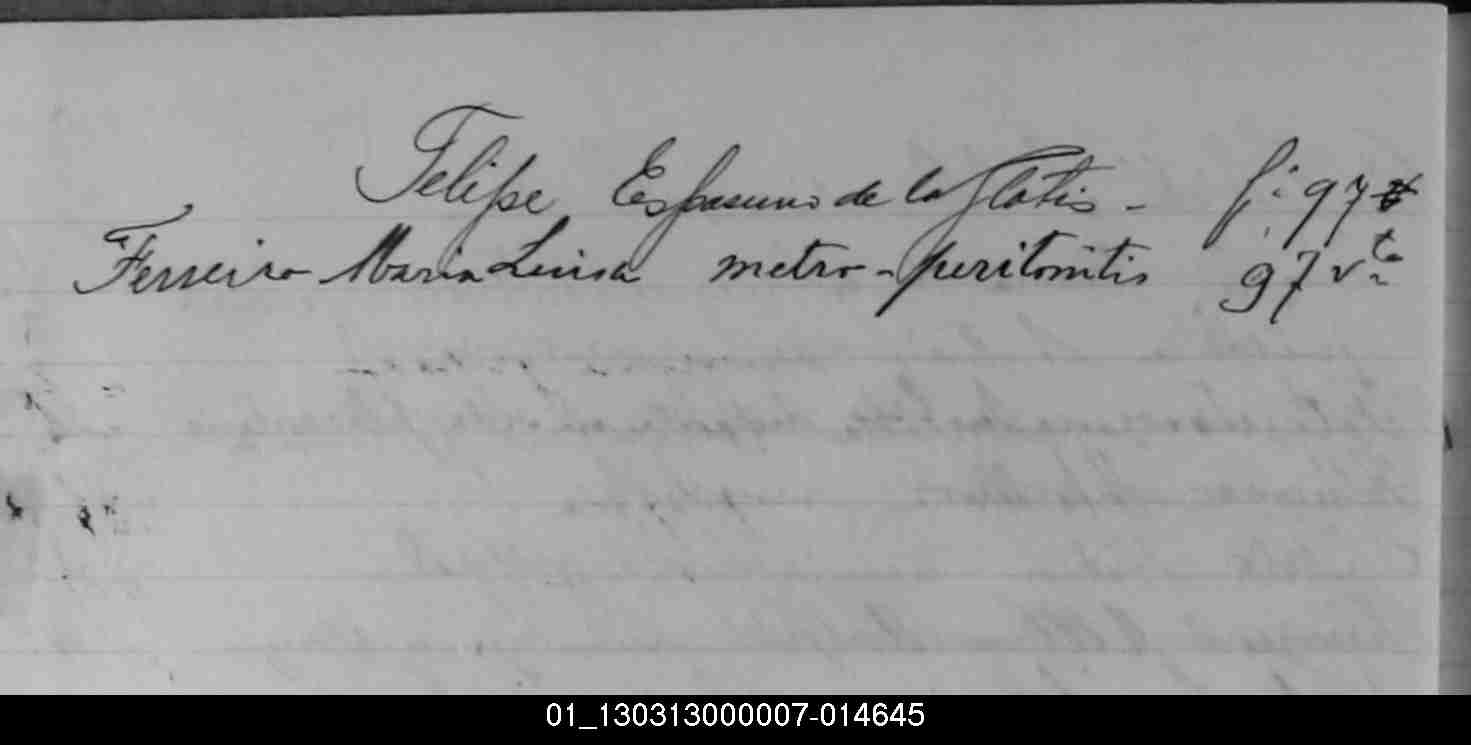 Felipe Espasmo de la Glotis - f. 97
Ferreiro Maria Luisa metro-peritonitis 97 vta
01_130313000007-014645